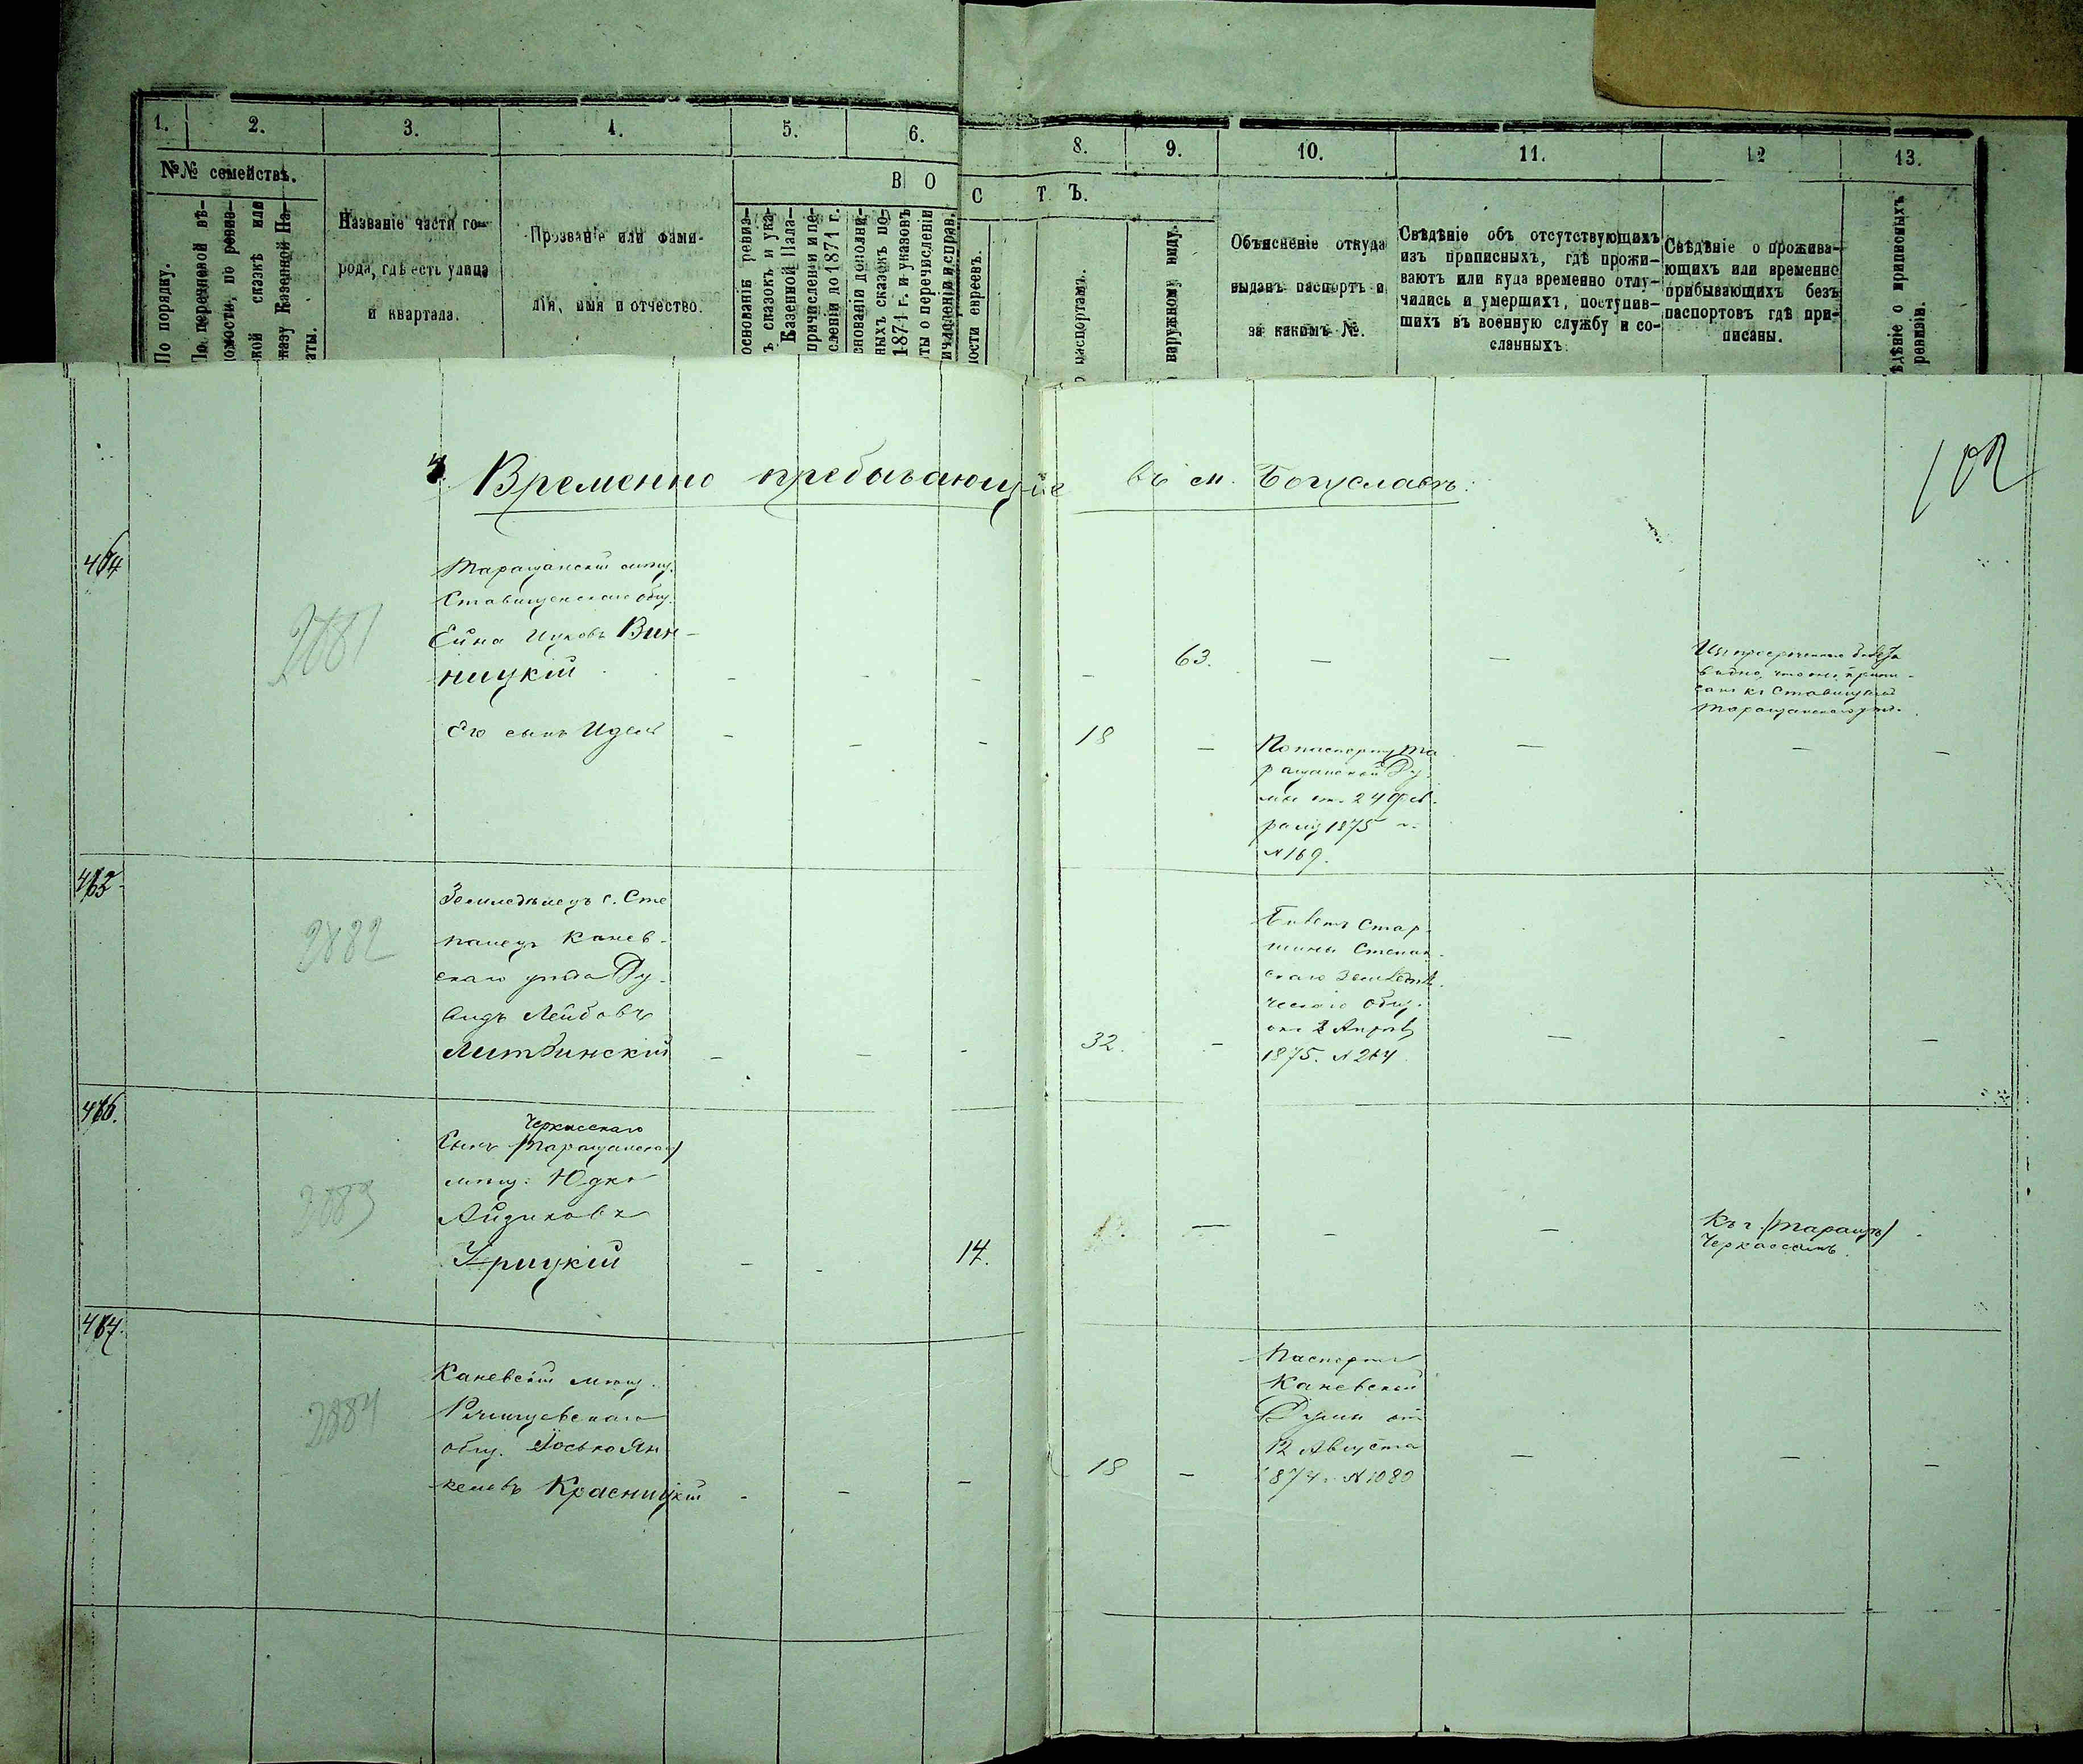 1. 2. 3. 4. 5. 6. 8. 9. 10. 11. 12 13.
№№ семействъ.
В О
С Т Ъ.
По порядку.
По перечневой вѣ-
домости, по ревиз-
ской сказкѣ или
указу Казенной Па-
латы.
Названіе части го-
рода, гдѣ есть улица
и квартала.
Прозваніе или фами-
лія, имя и отчество.
основаніе ревиз-
ъ сказокъ и ука-
Казенной Пала-
причисленіи и пе-
сленіи до 1871 г.
снованіи дополни-
ныхъ сказокъ по-
1871 г. и указовъ
ты о перечисленіи
ичисленіи и справ.
ности евреевъ.
о паспортамъ.
наружному виду.
Объясненіе откуда
выданъ паспортъ и
за какимъ №.
Свѣдѣніе объ отсутствующихъ
изъ приписныхъ, гдѣ прожи-
ваютъ или куда временно отлу-
чились и умершихъ, поступив-
шихъ въ военную службу и со-
сланныхъ.
Свѣдѣніе о прожива-
ющихъ или временно
прибывающихъ безъ
паспортовъ гдѣ при-
писаны.
ѣдѣніе о приписныхъ
ревизіи.
Временно пребывающіе въ м. Богуславѣ:
102
464
2881
Таращанскій мѣщ.
Ставищенскаго общ.
Ейна Ицковъ Вин-
ницкій
63.
видно, что онъ припи-
санъ къ Ставищской
Таращанскаго уѣзд.
Его сынъ Идель
18
По паспорту Та
ращанской Ду-
мы от. 24 Фев-
раля 1875 г.
№ 169.
465
2882
Земледѣлецъ с. Сте
панецъ Канев-
скаго уѣзда Ду-
видъ Лейбовъ
Литвинскій
32.
Билетъ Стар-
шины Степан-
скаго Земледѣль-
ческаго Общ.
1875. № 264
466.
2883
Черкасскаго
Сынъ /Таращанскаго/
мѣщ: Юдко
Айзиковъ
Урицкій
14.
Къ г. /Таращѣ/
Черкассамъ.
467.
2884
Каневскій мѣщ.
Ржищевскаго
общ. Йосько Ян
келевъ Красницкій
18
Паспортъ
Каневской
Думы от
12 Августа
1874. № 1080